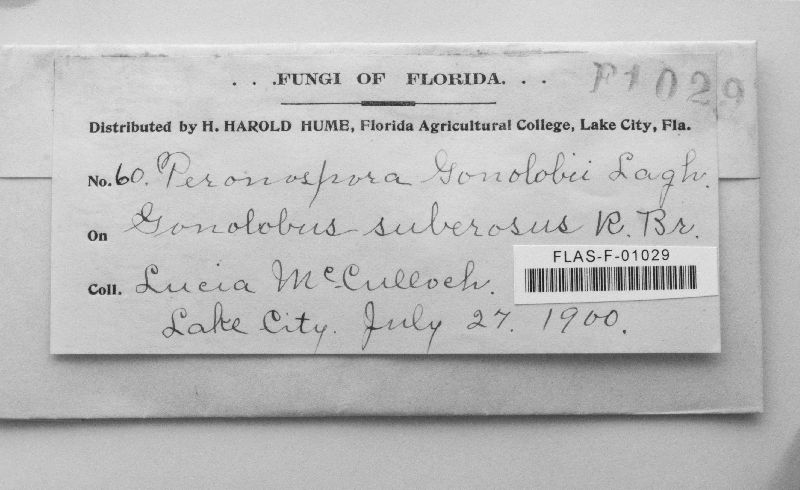 . . .FUNGI OF FLORIDA. . .
F1029
Distributed by H. HAROLD HUME, Florida Agricultural College, Lake City, Fla.
No. 60. Peronospora Gonolobii Lagh.
On Gonolobus suberosus R. Br.
FLAS-F-01029
Coll. Lucia McCulloch.
Lake City. July 27. 1900.